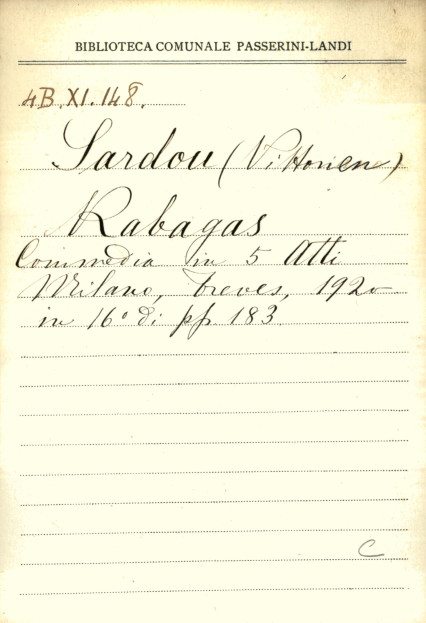 BIBLIOTECA COMUNALE PASSERINI-LANDI
4B.XI.148.
Sardou (Vittorien)
Rabagas
Commedia in 5 Atti
Milano, Treves, 1920
in 16° di pp. 183
C